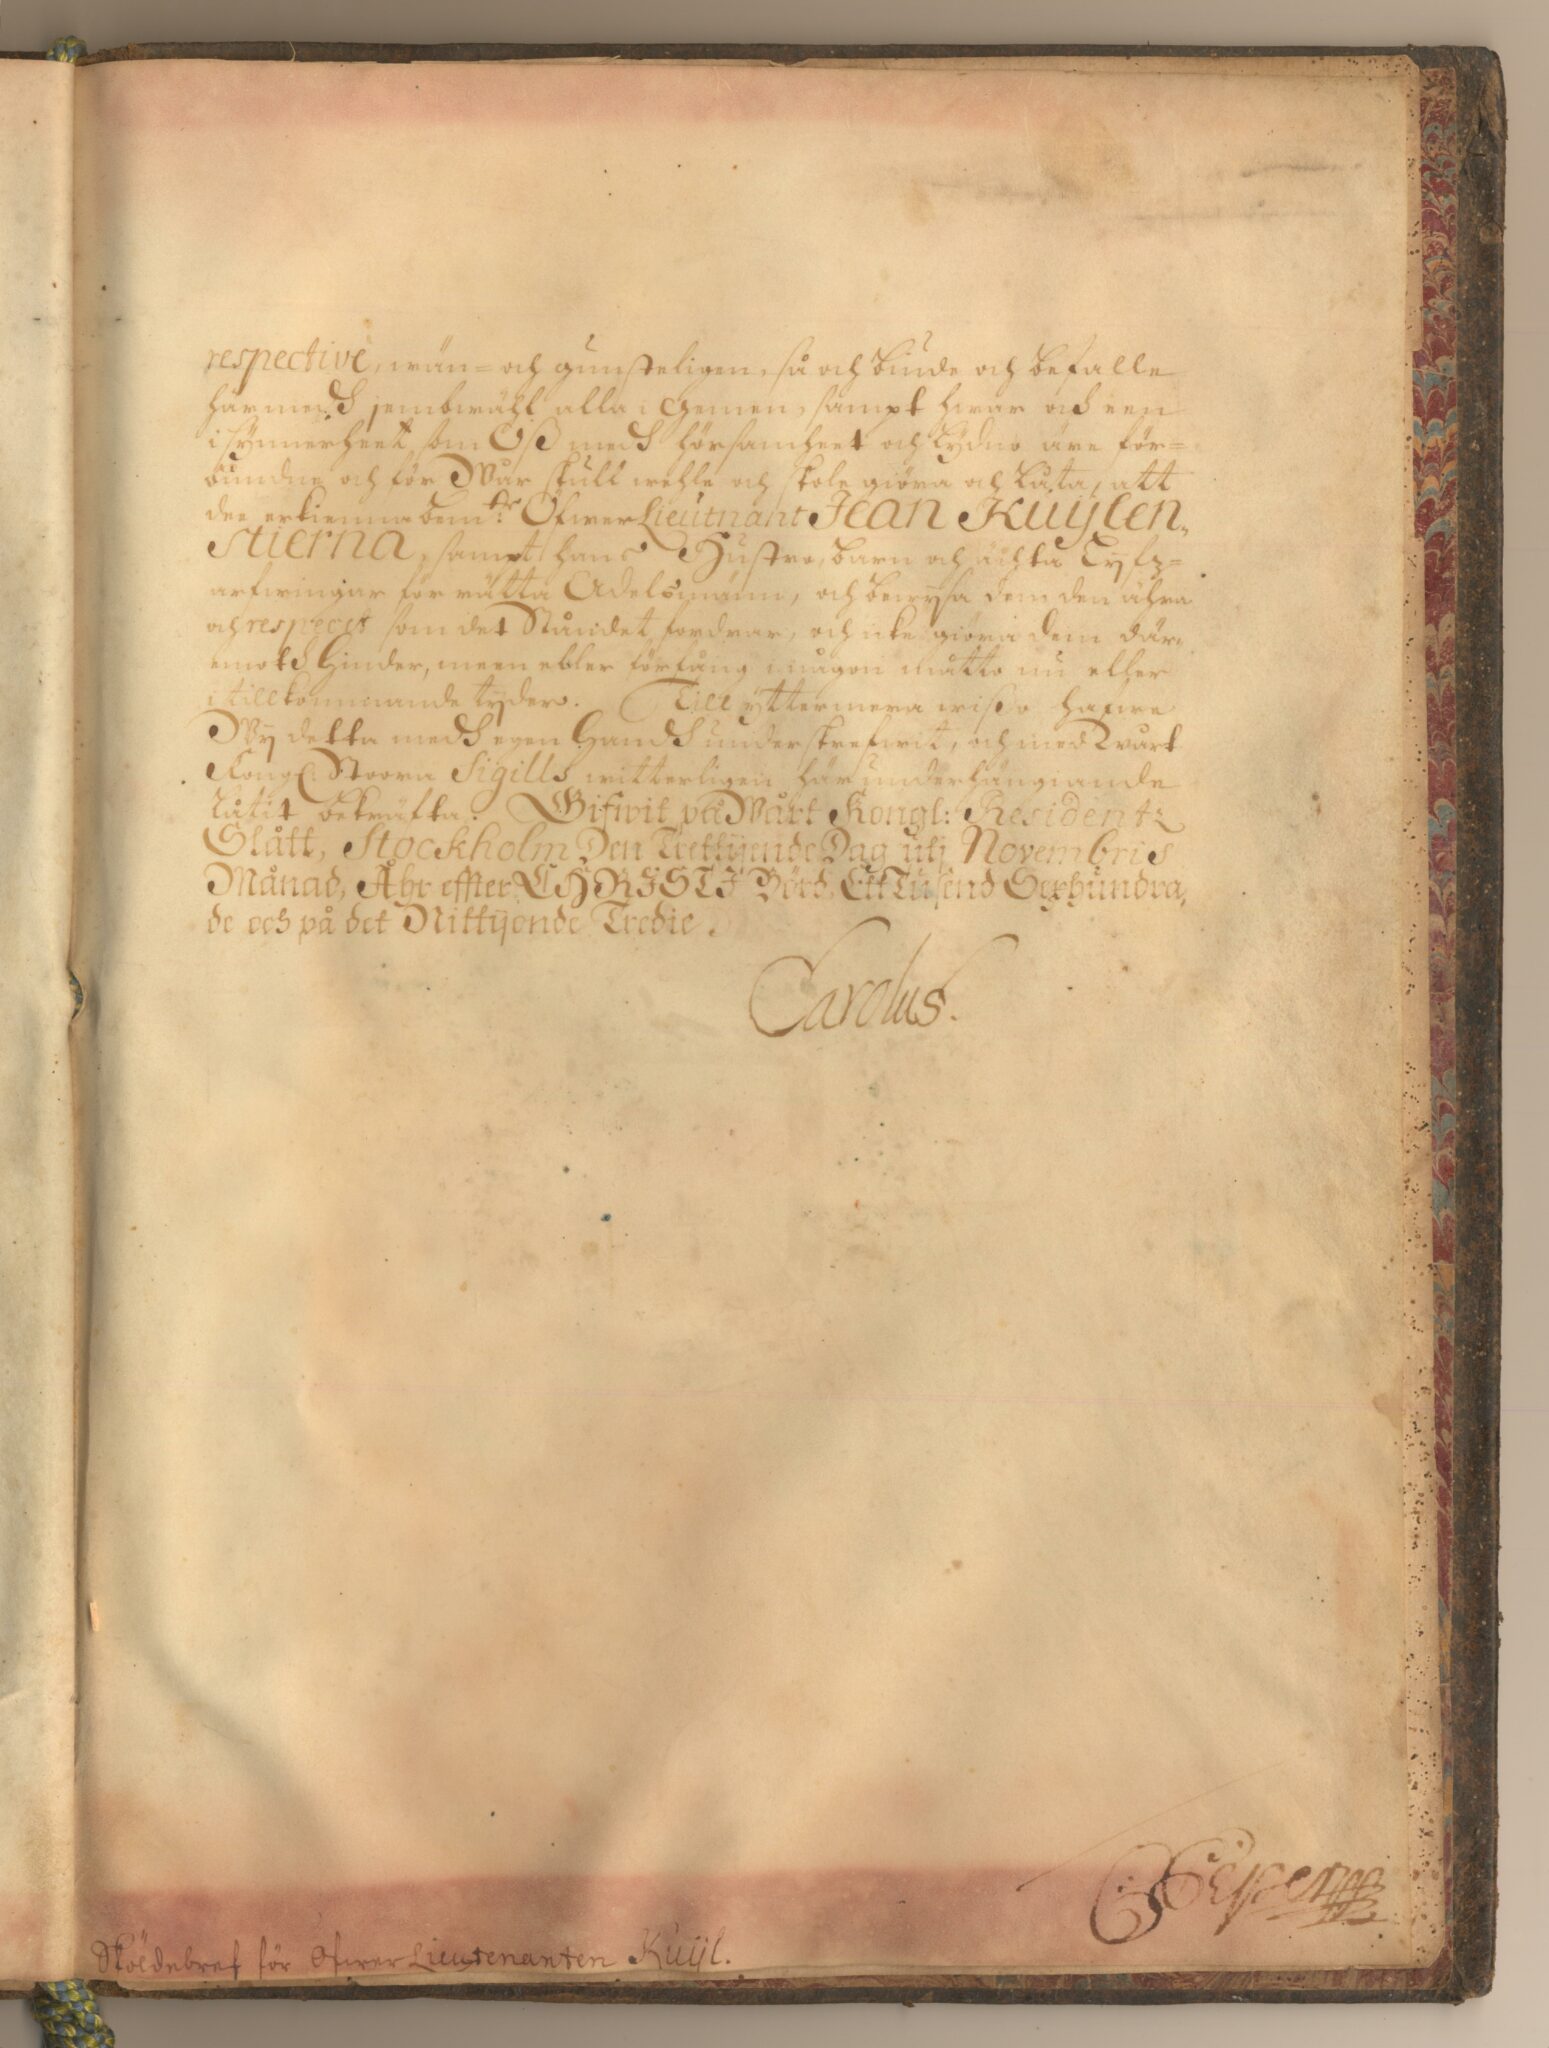 respective, wän- och gunsteligen, så och biude och befalle
härmedh jembwähl alla i gemen, sampt hwar och een
i synnerheet som Oß medh hörsamheet och lydno äre för-
bundne och för Wår skull wehle och skole giöra och låta, att
dee erkienna bem:te Öfwer Lieutnant Jean Kuÿlen-
stierna, sampt hans Hustro, barn och ächta Lyfz-
arfwingar för rätta Adelsmänn, och bewysa dem den ähra
och respect som det Ståndet fordrar, och icke giöra dem där-
emoth Hinder, meen eller förfång i någon måtto nu eller
i tillkommande tyder. Till ÿttermera wißo hafwe
Wÿ detta medh egen Handh underskrefwit, och med wårt
Kongl: Stoora Sigills witterligen här underhängiande
låtit bekräfta. Gifwit på Wårt Kongl: Residentz
Slått, Stockholm Den Trettijende Dag utj Novembris
Månad, Åhr effter CHRISTI Börd, Ett Tusend Sexhundra,
de och på det Nittijonde Tredie.
Carolus.
Sköldebref för Öfwer Lieutenanten Kuijl.